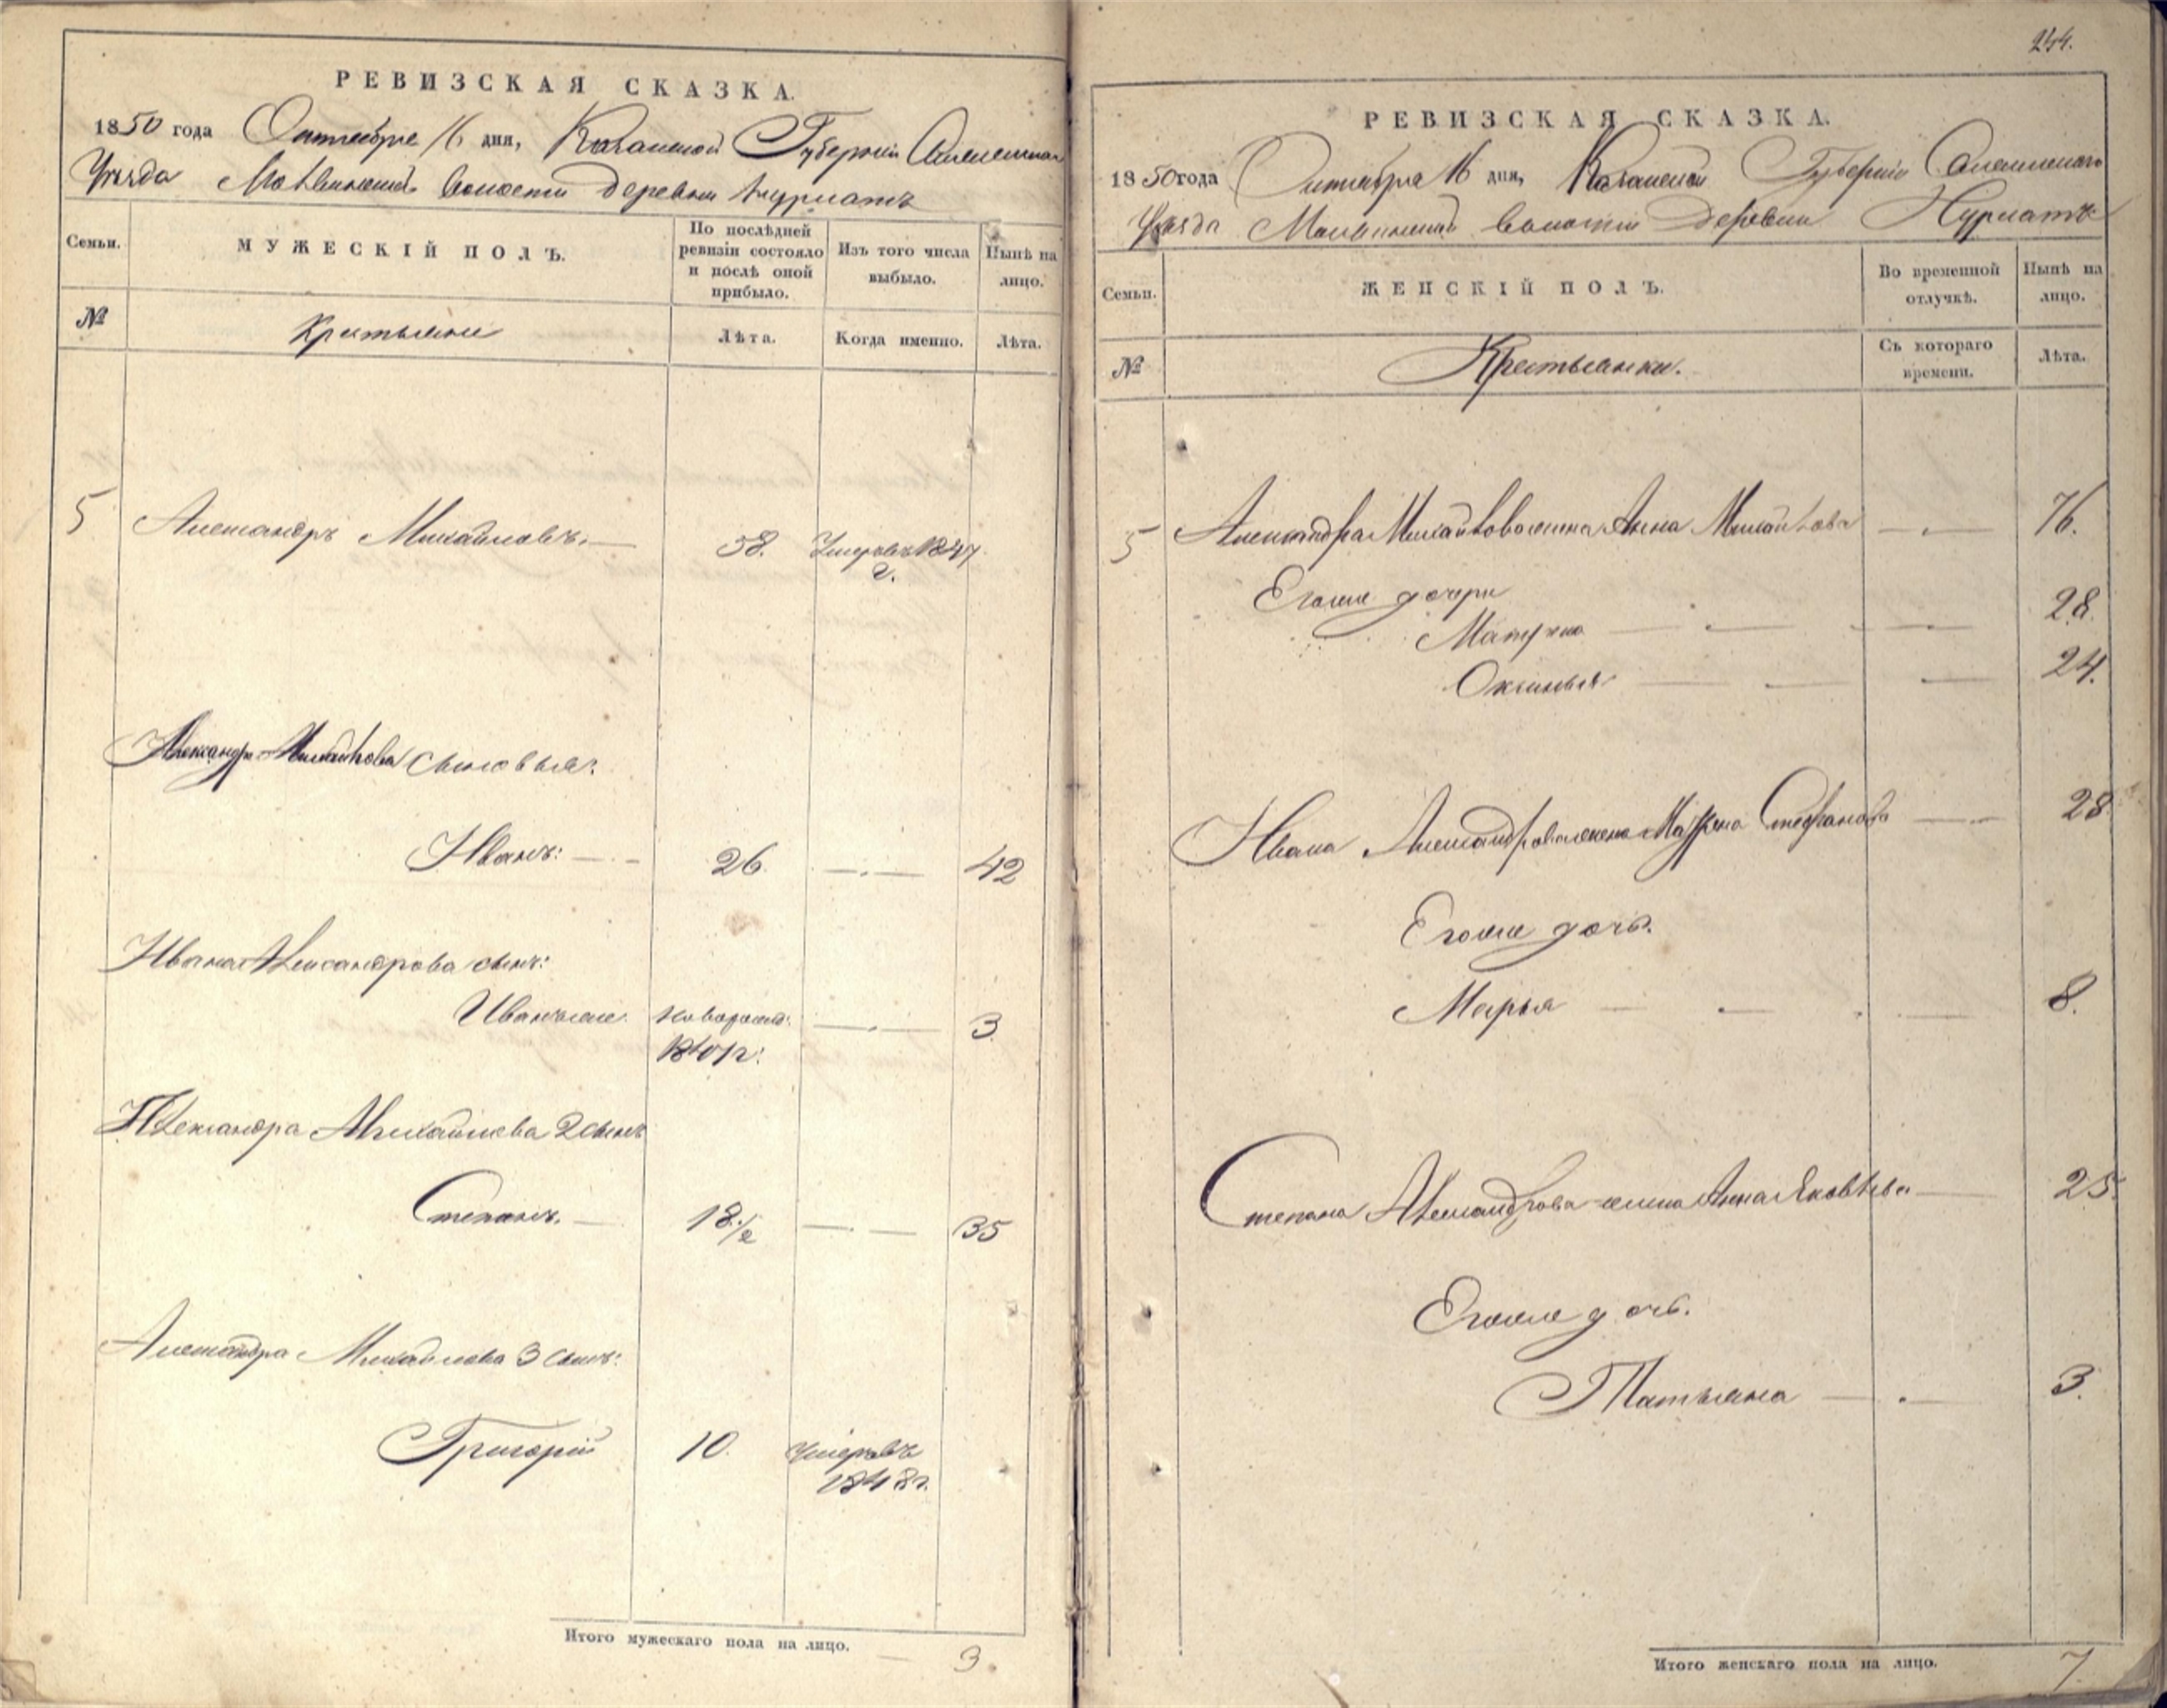 РЕВИЗСКАЯ СКАЗКА.
1850 года Октября 16 дня, Казанской Губернии
Уезда волости деревни Нурлатъ
Семьи.
МУЖЕСКІЙ ПОЛЪ.
По послѣдней ревизіи состояло и послѣ оной прибыло.
Изъ того числа выбыло.
Нынѣ на лицо.
№
Крестьяне
Лѣта.
Когда именно.
Лѣта.
5 Александръ Михайловъ. 58. Умеръ въ 1847 г.
Александра Михайлова сыновья:
Иванъ: 26 42
Ивана Александрова сынъ:
Иванъ же. новорожд: 3
Александра Михайлова 2 сынъ
Степанъ. 18 1/2 35
Александра Михайлова 3 сынъ:
Григорій 10. Умеръ въ 1848 г.
Итого мужескаго пола на лицо. 3.
244.
РЕВИЗСКАЯ СКАЗКА.
1850 года Октября 16 дня, Казанской Губерніи
Уезда волости деревни Нурлатъ
Семьи.
ЖЕНСКІЙ ПОЛЪ.
Во временной отлучкѣ.
Нынѣ на лицо.
№
Крестьянки.
Съ котораго времени.
Лѣта.
5 Александра Михайлова жена Анна Михайлова 76.
Его же дочери
28.
Оксинья 24.
Ивана Александрова жена Стефанова 28
Его же дочь.
Марья 8.
Степана Александрова жена Анна Яковлева 25.
Его же дочь.
Татьяна 3.
Итого женскаго пола на лицо. 7.